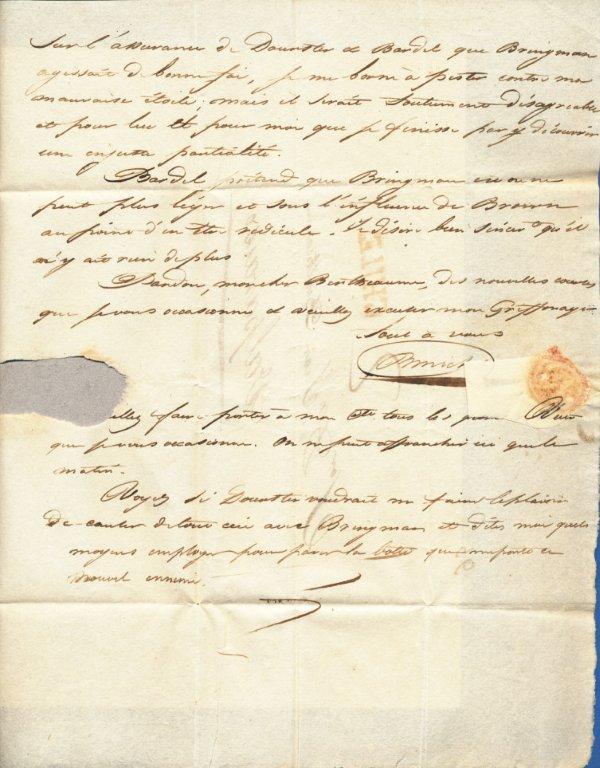 Sur l'assurance de Dounther et Bardel que Bringman
agissait de bonne foi, je me borne à pester contre ma
mauvaise étoile; mais il serait Souverainement désagréable
et pour lui et pour moi que je finisse par y découvrir
une injuste partialité.
Bardel prétend que Bringman
peut plus léger et sous l'influence de Brown
au point d'en être ridicule. Je désire bien sincèrt qu'il
n'y ait rien de plus.
Pardon, mon cher des nouvelles courses
que je vous occasionne et veuillez excuser mon Griffonage.
Tout à vous
faire porter à mon cte tous les
que je vous occasionne. On ne peut affranchir ici que le
matin.
Voyez si Dounther voudrait me faire le plaisir
de causer de tout ceci avec Bringman et dites moi quels
moyens employer pour parer la botte que me porte ce
nouvel ennemi.